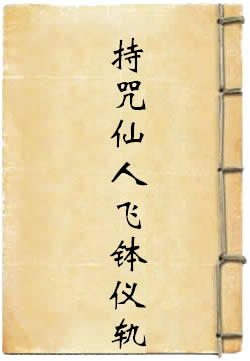 持咒仙人飞钵仪轨